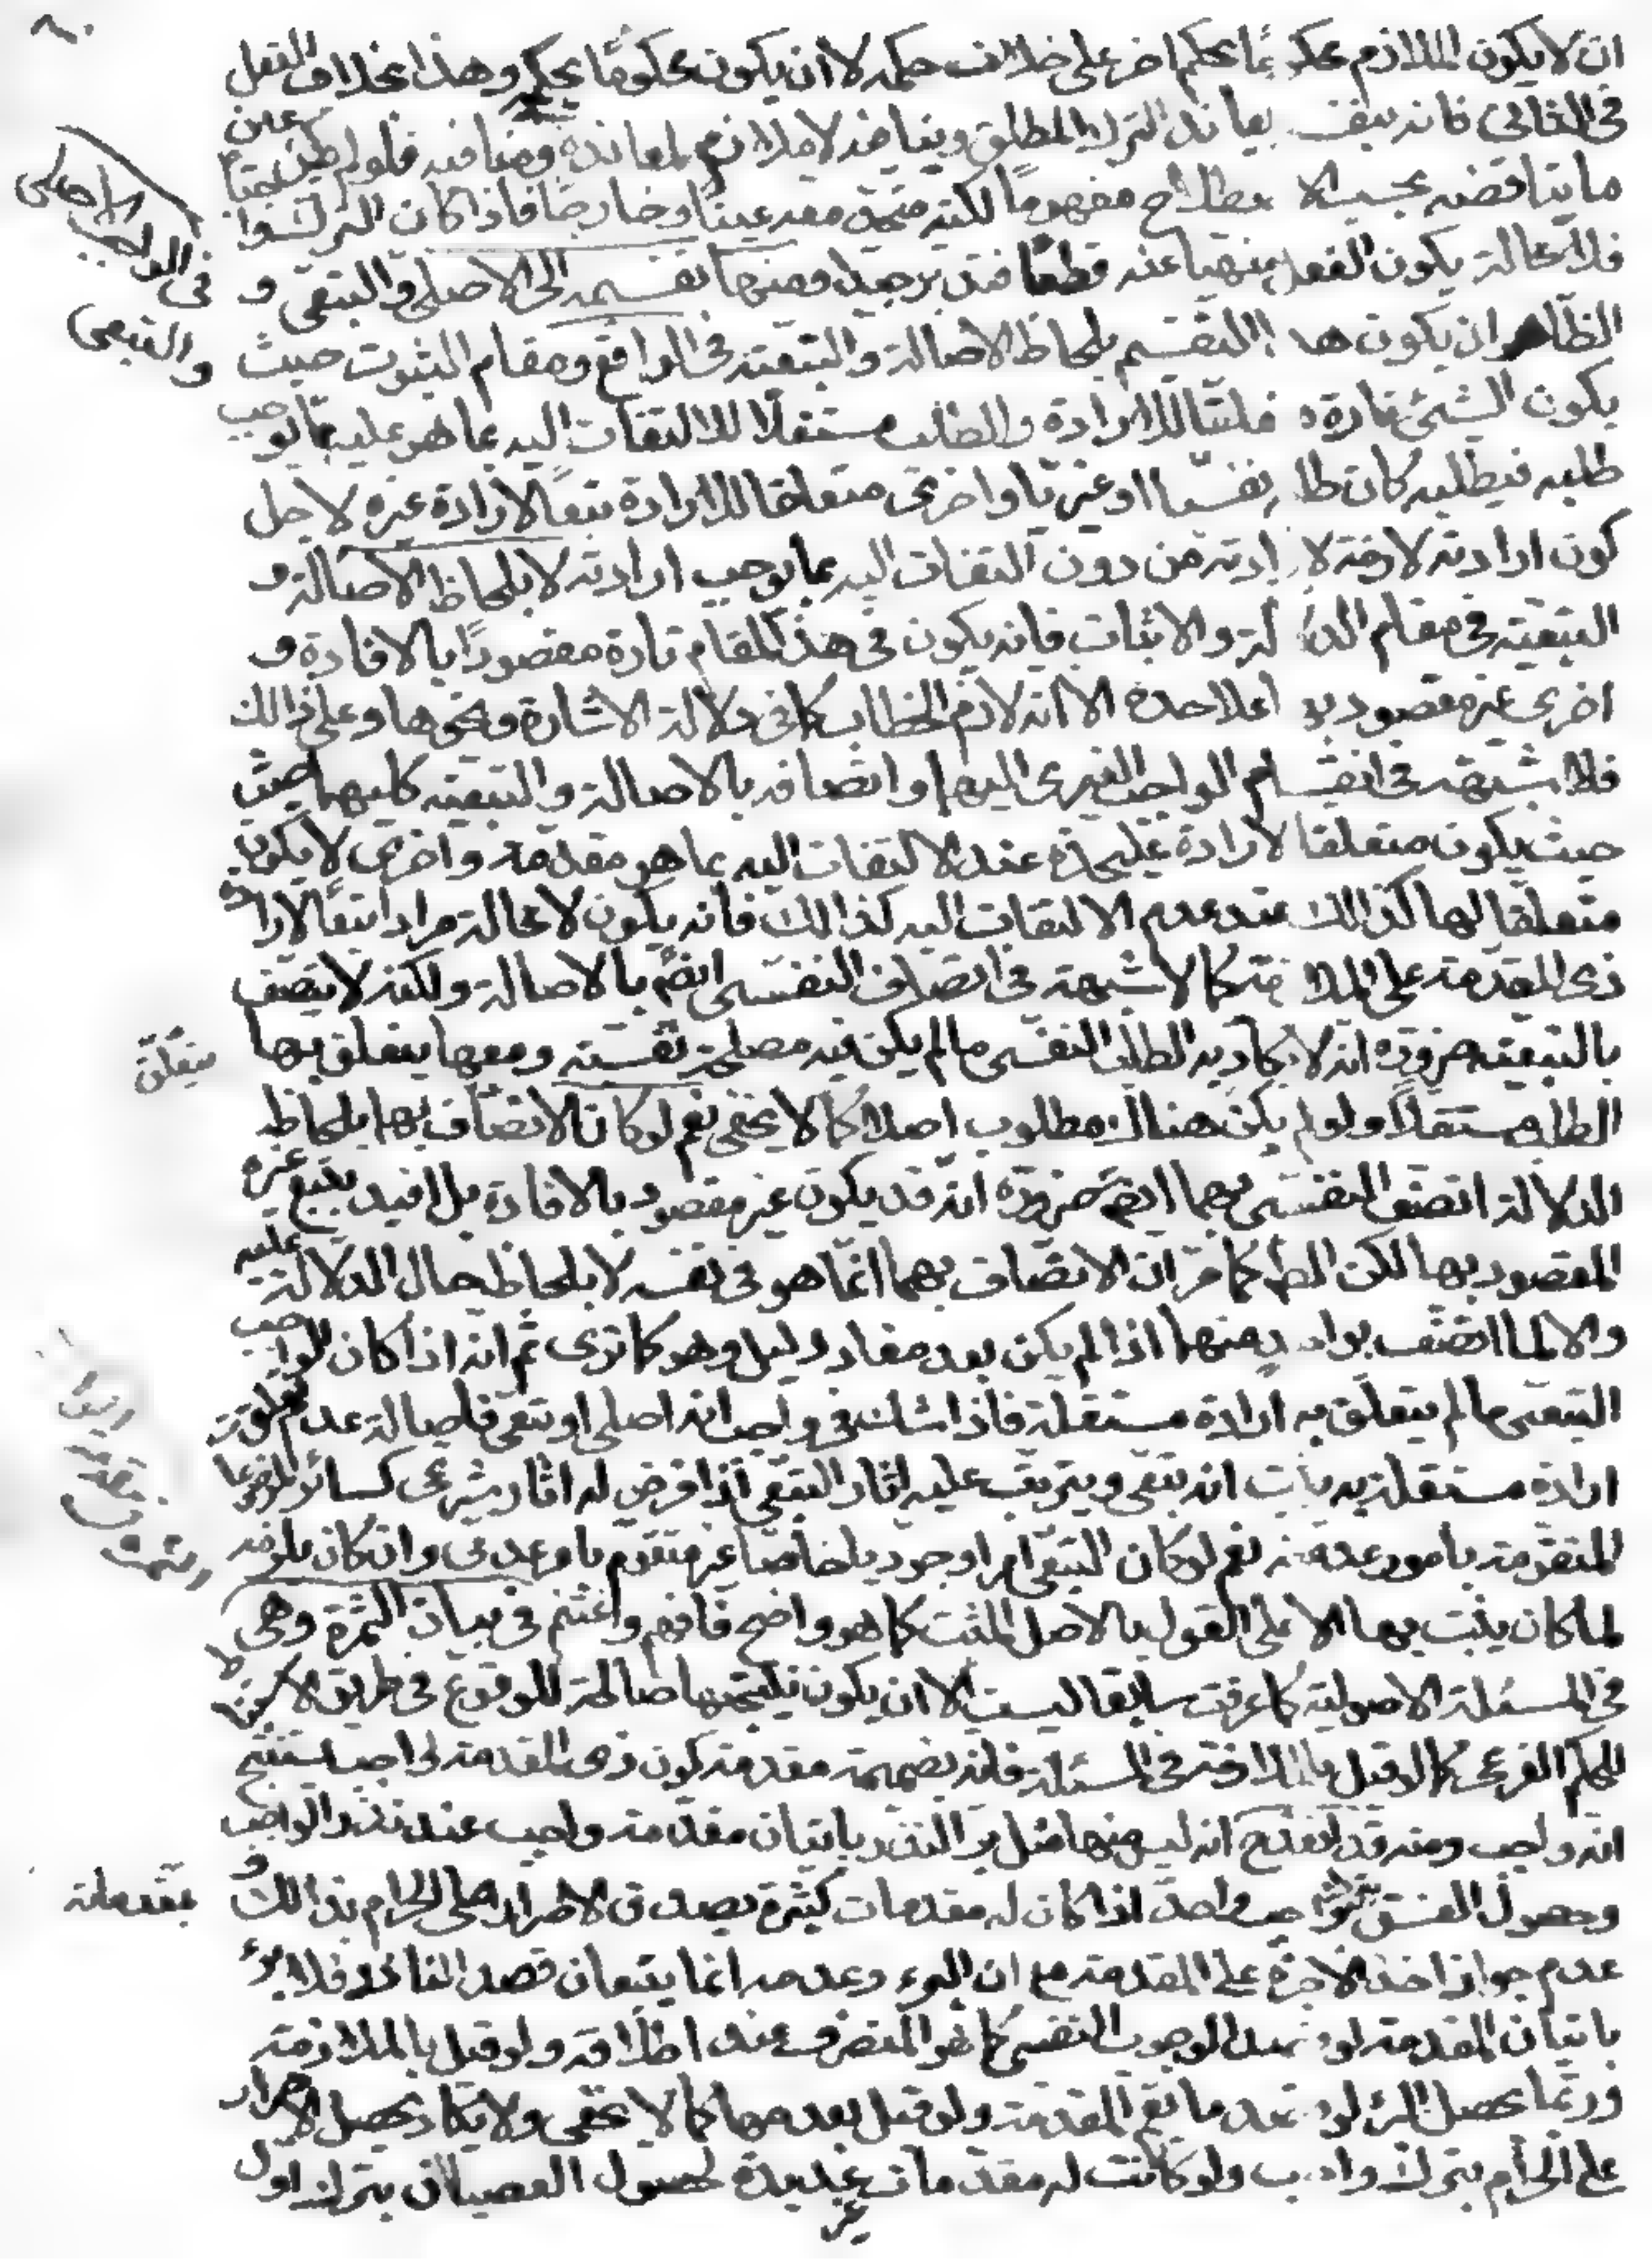 ان لا يكون الملازم محكوما بحكم اخر على خلاف حكمه لا ان يكون محكومًا بحكمه وهذا بخلاف الفعل
فى الثانى فانه بنفسه يعاند الترك المطلق وينافيه لا ملازم لمعانده ومنافيه فلو لم يكن عين
ما يناقضه بحسب الاصطلاح مفهومًا لكنه متحد معه عينًا وخارجًا فاذا كان الترك واجبًا
فلا محالة يكون الفعل منهيا عنه قطعًا فتدبر جيدا ومنها تقسيمه الى الاصلى والتبعى و
الظاهر ان يكون هذا التقسيم بلحاظ الاصالة والتبعية فى الواقع ومقام الثبوت حيث
يكون الشئ تارة متعلقا للارادة والطلب مستقلا للالتفات اليه بما هو عليه مما يوجب
طلبه فيطلبه كان طلبه نفسيا او غيريا واخرى متعلقا للارادة تبعًا لارادة غيره لاجل
كون ارادته لازمة لارادته من دون التفات اليه بما يوجب ارادته لا بلحاظ الاصالة و
التبعية فى مقام الدلالة والاثبات فانه يكون فى هذا المقام تارة مقصودًا بالافادة و
اخرى غير مقصود بها على حدة الا انه لازم الخطاب كما فى دلالة الاشارة ونحوها وعلى ذالك
فلا شبهة فى انقسام الواجب الغيرى اليهما واتصافه بالاصالة والتبعية كليهما حيث
حيث يكون متعلقا لارادة عليحدة عند الالتفات اليه بما هو مقدمة واخرى لا يكون
متعلقا لها كذالك عند عدم الالتفات اليه كذالك فانه يكون لا محالة مرادا تبعًا لارادة
ذى المقدمة على الملازمة كما لا شبهة فى اتصاف النفسى ايضًا بالاصالة ولكنه لا يتصف
بالتبعية ضرورة انه لا يكاد به الطلب النفسى ما لم يكن فيه مصلحة نفسية ومعها يتعلق بها
الطلب مستقلًا ولو لم يكن هناك مطلوب اصلا كما لا يخفى نعم لو كان الاتصاف بهما بلحاظ
الدلالة اتصف النفسى بهما ايضًا ضرورة انه قد يكون غير مقصود بالافادة بل افيد بتبع غيره
المقصود بها لكن الظ كما مر ان الاتصاف بهما انما هو فى نفسه لا بلحاظ حال الدلالة عليه
والا لما اتصف بواحد منهما اذا لم يكن بعد مفاد دليل وهو كما ترى ثم انه اذا كان الواجب
التبعى ما لم يتعلق به ارادة مستقلة فاذا شك فى واجب انه اصلى او تبعى فاصالة عدم تعلق
ارادة مستقلة به يثبت انه تبعى ويترتب عليه اثار التبعى اذا فرض له اثار شرعى كسائر الموضوعات
المتقومة بامور عدمية نعم لو كان التبعى امرا وجوديا خاصا غير متقوم بامر عدمى وان كان يلزمه
لما كان يثبت بها الا على القول بالاصل المثبت كما هو واضح فافهم واغتنم فى بيان الثمرة وهى
فى المسئلة الاصولية كما عرفت سابقا ليست الا ان يكون نتيجتها صالحة للوقوع فى طريق الاستنباط
للحكم الفرعى كما لو قيل بالملازمة فى المسئلة فانه بضميمة مقدمة كون ذى المقدمة واجب يستنتج
انه واجب ومنه قد انقدح انه ليس منها مثل بر النذر باتيان مقدمة واجب عند نذر الواجب
وحصول الفسق بترك واجب واحد اذا كان له مقدمات كثيرة يصدق الاصرار على الحرام بذالك و
عدم جواز اخذ الاجرة على المقدمة مع ان البرء وعدمه انما يتبعان قصد الناذر فلا برء
باتيان المقدمة لو قصد الوجوب النفسى كما هو المنصرف عند اطلاقه ولو قيل بالملازمة
وربما يحصل البر لو قصد ما يعم المقدمة ولو قيل بعدمها كما لا يخفى ولا يكاد يحصل الاصرار
على الحرام بترك واجب ولو كانت له مقدمات غير عديدة لحصول العصيان بترك اول
فى الواجب الاصلى
والتبعى
يتعلق
بمقدماته